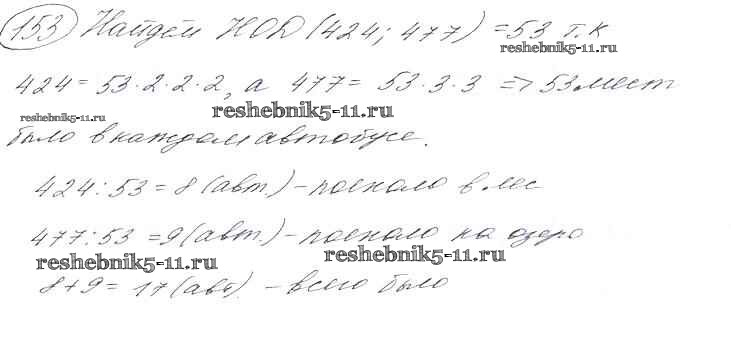 153 Найдём НОД (424; 477) = 53 т.к
reshebnik5-11.ru
424 = 53·2·2·2, а 477 = 53·3·3 => 53 мест
reshebnik5-11.ru reshebnik5-11.ru
было в каждом автобусе.
424:53 = 8 (авт.) - поехало в лес
477:53 = 9 (авт.) - поехало на озеро
reshebnik5-11.ru reshebnik5-11.ru
8+9 = 17 (авт). - всего было